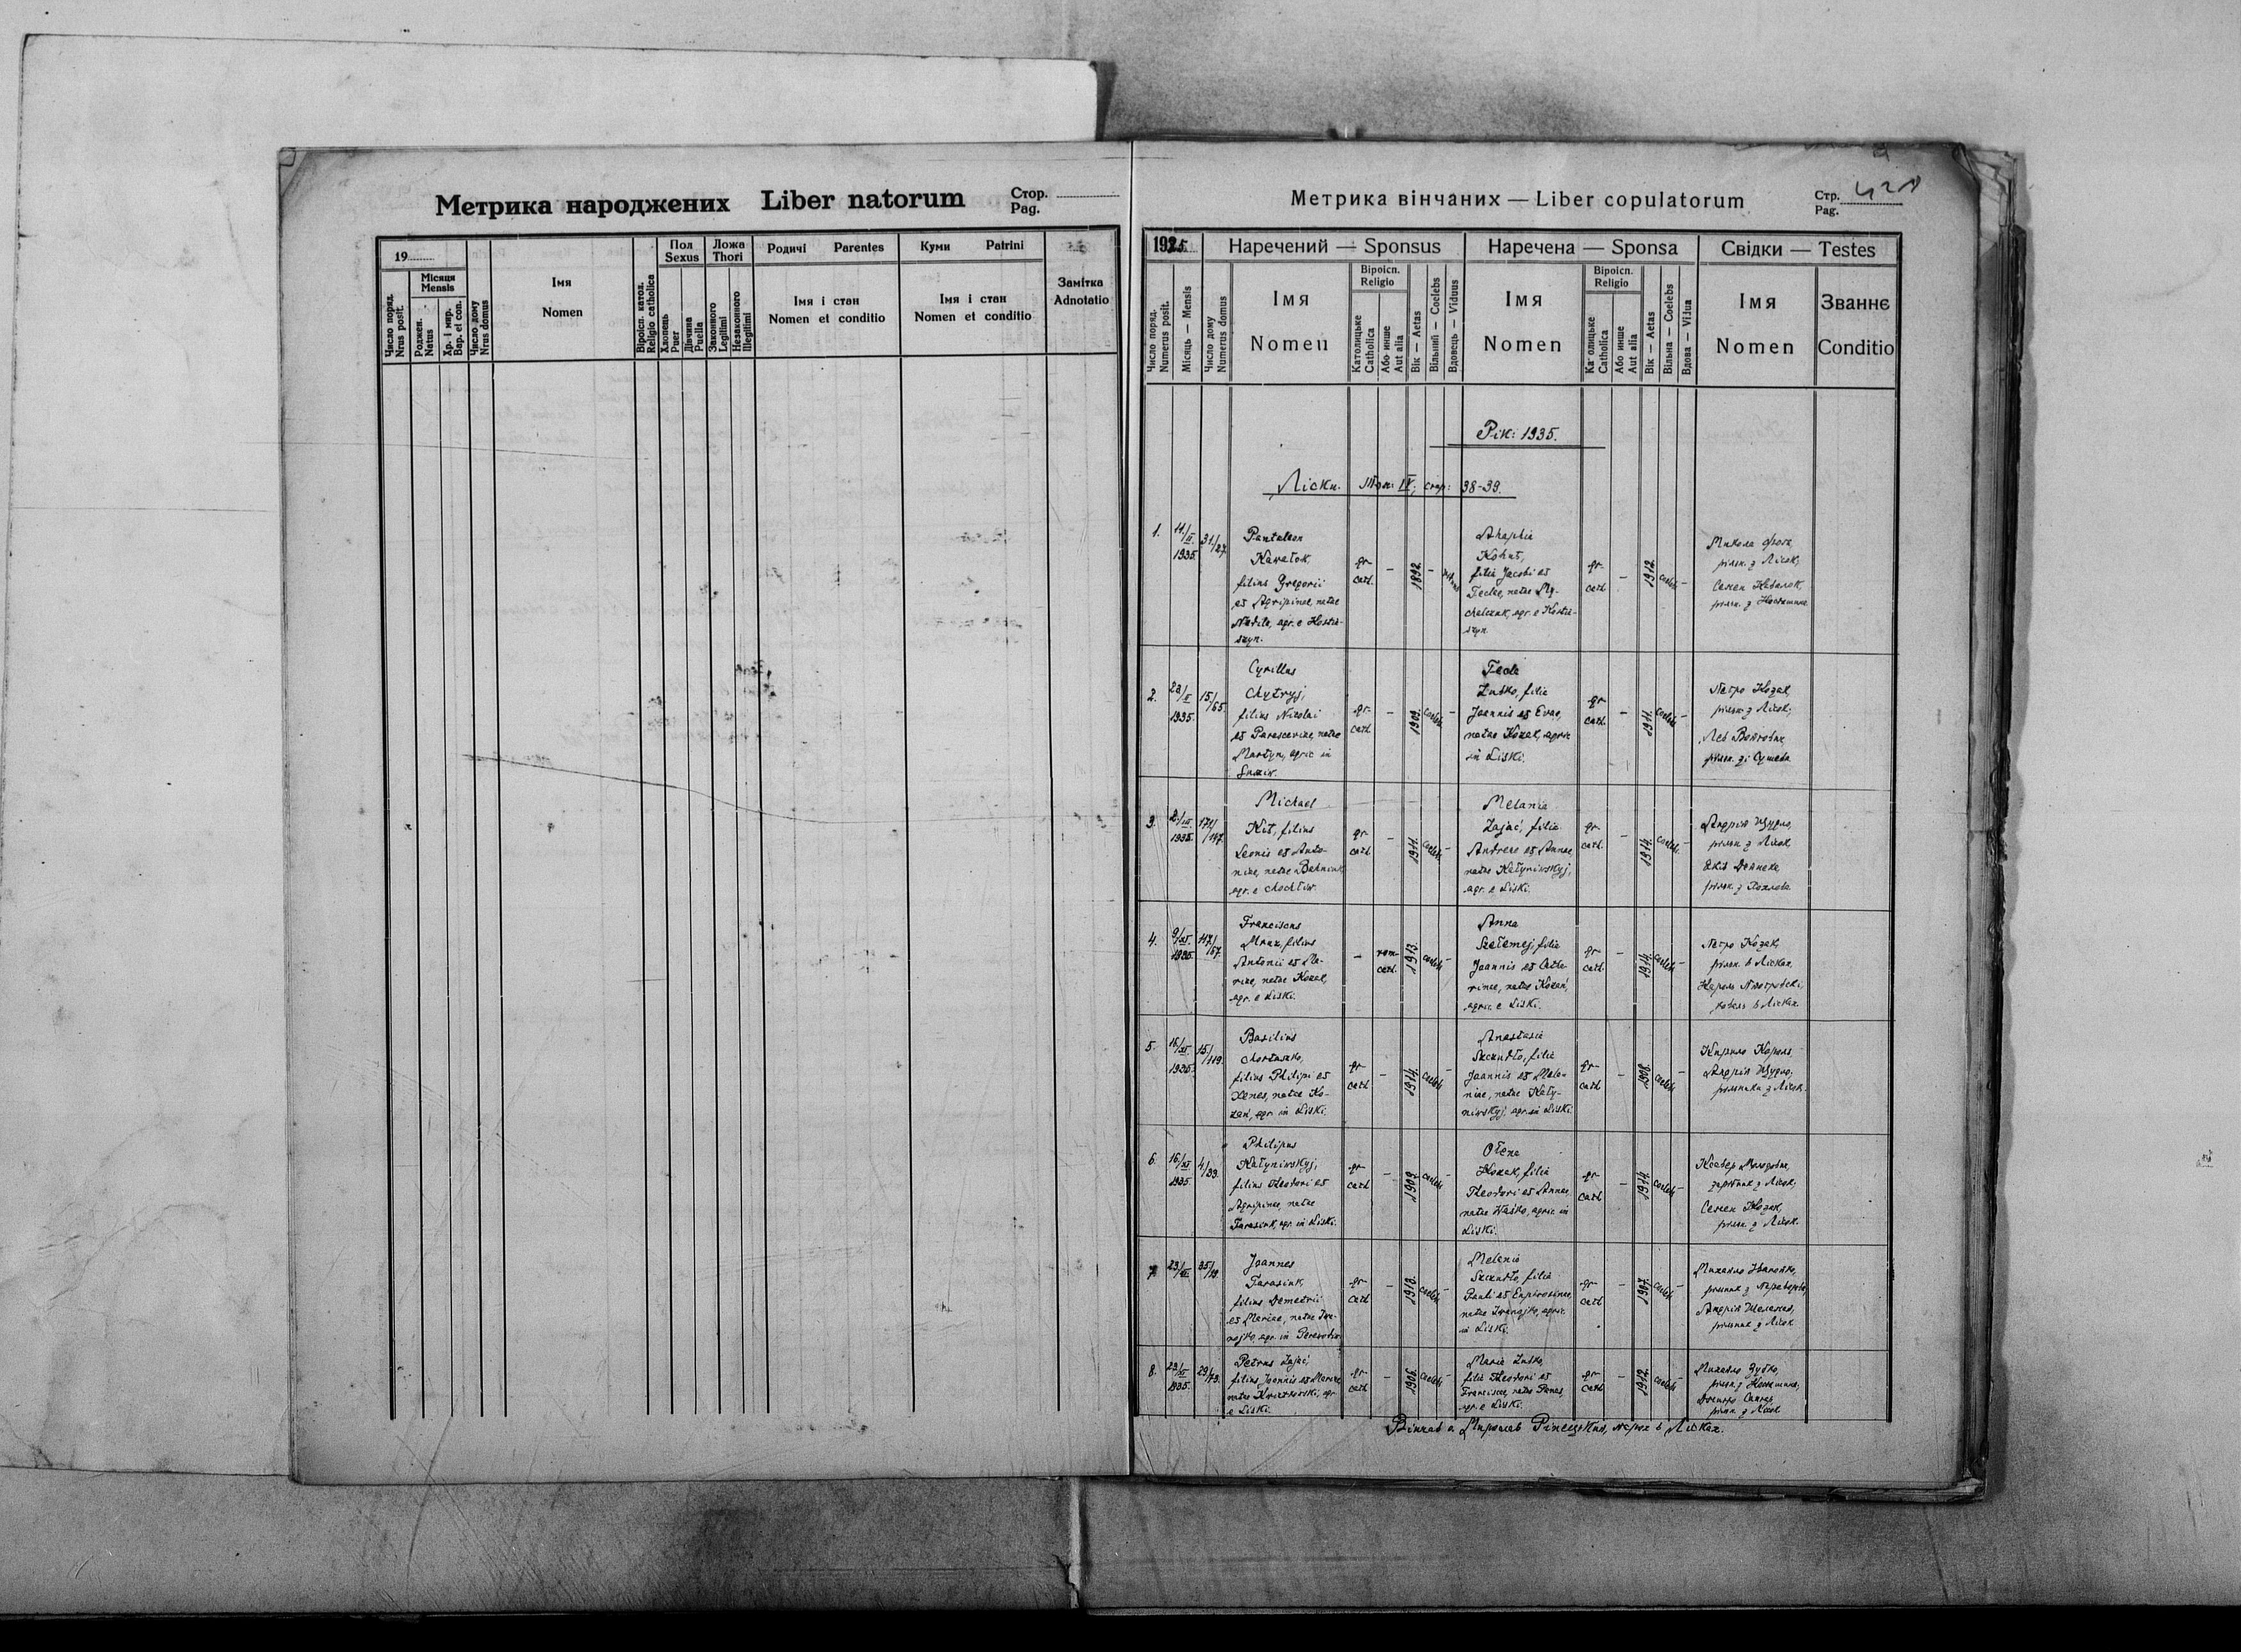 Метрика народжених Liber natorum
Стор.
Pag.
19
Число поряд.
Nrus posit.
Місяця
Mensis
Роджен.
Natus
Хр. і мир.
Bap. et con.
Число дому
Nrus domus
Імя
Nomen
Віроісп. катол.
Religio catholica
Пол
Sexus
Хлопець
Puer
Дівчина
Puella
Ложа
Thori
Законного
Legitimi
Незаконного
Illegitimi
Родичі Parentes
Імя і стан
Nomen et conditio
Куми Patrini
Імя і стан
Nomen et conditio
Замітка
Adnotatio
Метрика вінчаних — Liber copulatorum
Стр.
Pag.
1935.
Число поряд.
Numerus posit.
Місяць — Mensis
Число дому
Numerus domus
Наречений — Sponsus
Імя
Nomen
Віроісп.
Religio
Католицьке
Catholica
Або инше
Aut alia
Вік — Aetas
Вільний — Coelebs
Вдовець — Viduus
Наречена — Sponsa
Імя
Nomen
Віроісп.
Religio
Ка олицьке
Catholica
Або инше
Aut alia
Вік — Aetas
Вільна — Coelebs
Вдова — Vidua
Свідки — Testes
Імя
Nomen
Званнє
Conditio
Рік: 1935.
Ліски. Том: IV, стор: 38-39.
1.
11/II.
1935.
31/27.
Pantaleon
Kawałok,
filius Gregorii
et Agripinae, natae
agr. e Kostia-
szyn.
gr.
cath.
–
1892.
–
viduus
Ahaphia
Kohut,
filia Jacobi et
Teclae, natae My-
chalczuk, agr. e Kostia-
szyn.
gr.
cath.
–
1912.
coelebs
–
Микола
рільн. з Лісок,
Семен Кавалок,
рільн. з Костяшина
2.
1935.
15/65.
Cyrillus
Chytryj,
filius Nicolai
et Parascevae, natae
Martyn, agric. in
gr.
cath.
–
1909.
coelebs
–
Tecla
Zubko, filia
Joannis et Evae,
natae Kozak, agric.
in Liski.
gr.
cath.
–
1911.
coelebs
–
Петро Козак,
рільн. з Лісок;
Лев Войтович
рільн. зі
3.
1935.
Michael
Kit, filius
Leonis et Anto-
ninae, natae
agr. e Chochłów.
gr.
cath.
–
1911.
coelebs
–
Melania
Zając, filia
Andreae et Annae,
natae Kałyniwskyj,
agr. e Liski.
gr.
cath.
–
1914.
coelebs
–
Андрій Щудло,
рільн. з Лісок
рільн. з
4.
9/XI.
1935.
117/57.
Franciscus
Mraz, filius
Antonii et Ma-
riae, natae Kozak,
agr. e Liski.
–
rom-
cath.
1913.
coelebs
–
Anna
Szełemej, filia
Joannis et Catha-
rinae, natae Kozak,
agric. e Liski.
gr.
cath.
–
1914.
coelebs
–
Петро Козак,
рільн. в Лісках,
Кароль
коваль в Лісках
5.
16/XI.
1935.
15/119.
Basilius
Chortuszko,
filius Philipi et
Xenes, natae Ko-
zak, agr. in Liski.
gr.
cath.
–
1914.
coelebs
Anastasia
Szczudło, filia
Joannis et Mela-
niae, natae Kały-
niwskyj, agr. in Liski.
gr.
cath.
–
1908.
coelebs
–
Кирило Король,
Андрій Щудло,
рільники з Лісок.
6.
16/XI
1935
4/33.
Philipus
Kałyniwskyj,
filius Theodori et
Agripinae, natae
Tarasiuk, agr. in Liski.
gr.
cath.
–
1909.
coelebs
Ołena
Kozak, filia
Theodori et Annae,
natae Waśko, agric. in
Liski.
gr.
cath.
–
1914.
coelebs
–
зарібник з Лісок;
Семен Козак,
рільн. з Лісок.
7.
35/19.
Joannes
Tarasiuk,
filius Demetrii
et Mariae, natae Iwa-
nojko, agr. in
gr.
cath.
–
1913.
coelebs
Melania
Szczudło, filia
Pauli et Euphrosinae,
natae Iwanojko, agric.
in Liski.
gr.
cath.
–
1907.
coelebs
–
Михайло Іванойко,
рільник з
Андрій Шелемей,
рільник з Лісок
8.
23/XI
1935.
29/73.
Petrus Zając,
filius Joannis et Mariae,
natae Kwiatkowski, agr.
e Liski.
gr.
cath.
–
1906.
coelebs
Maria Zubko,
filia Theodori et
Franciscae, natae Panas,
agr. e Liski.
gr.
cath.
–
1912.
coelebs
–
Михайло Зубко,
рільн. з Костяшина;
рільн. з Лісок
Вінчав о. Мирослав Ріпецький, парох в Лісках.